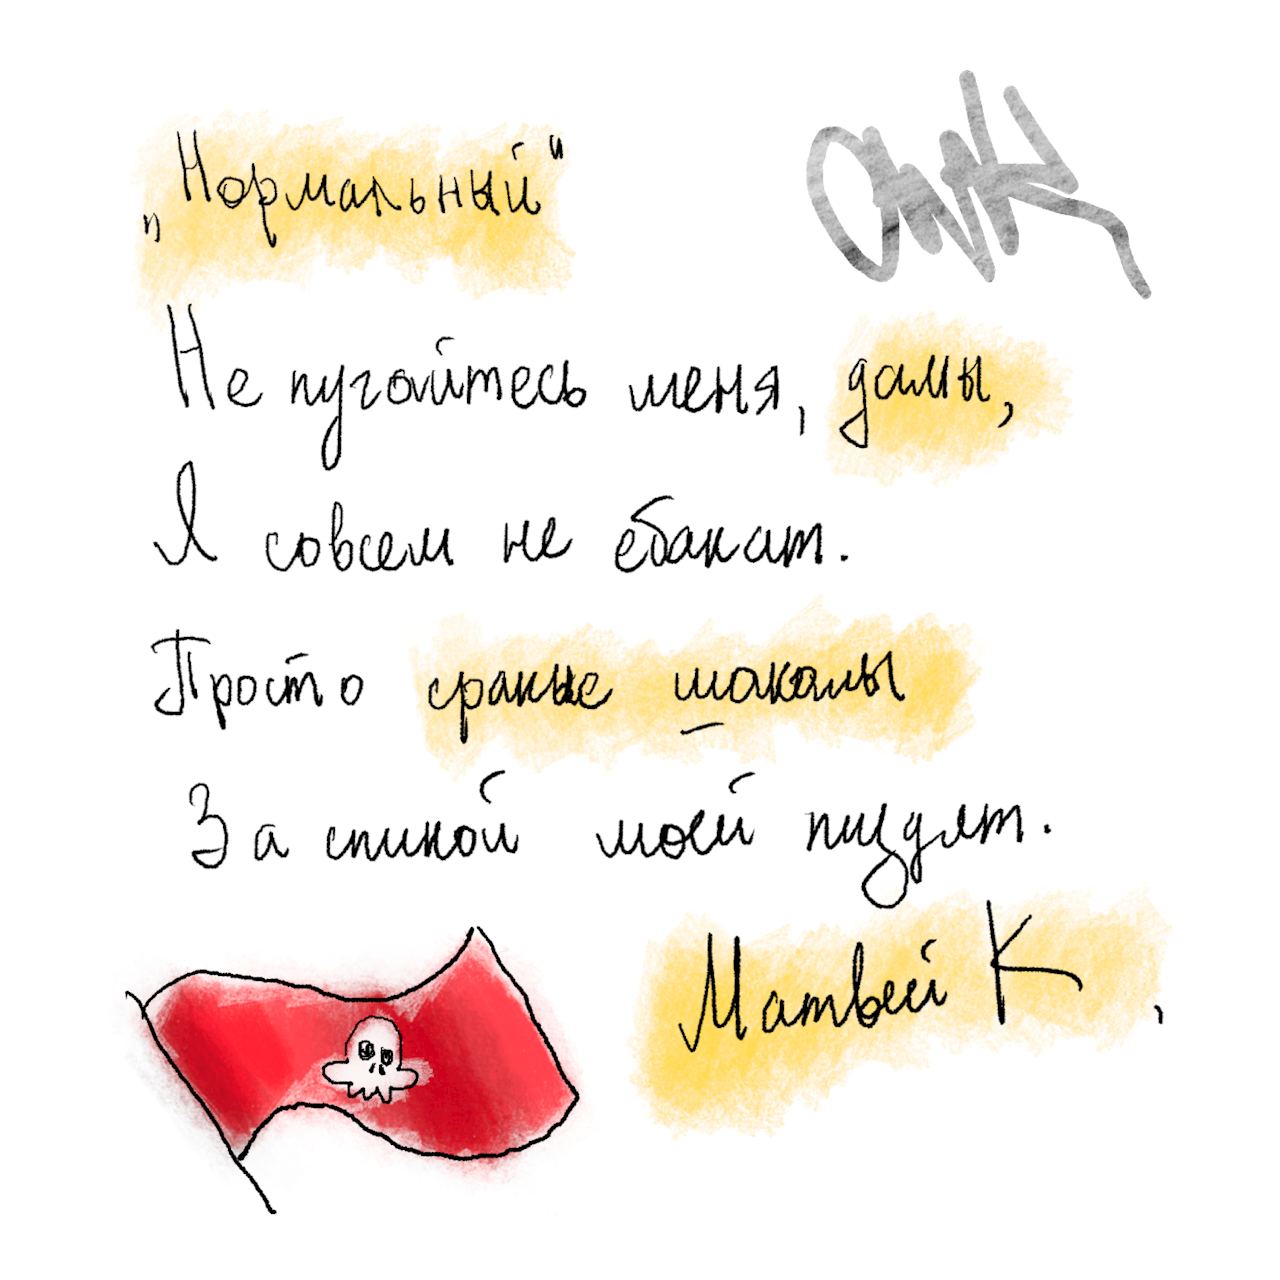 „Нормальный“
Не пугайтесь меня, дамы,
Я совсем не ебанат.
Просто сраные шакалы
За спиной моей пиздят.
Матвей К